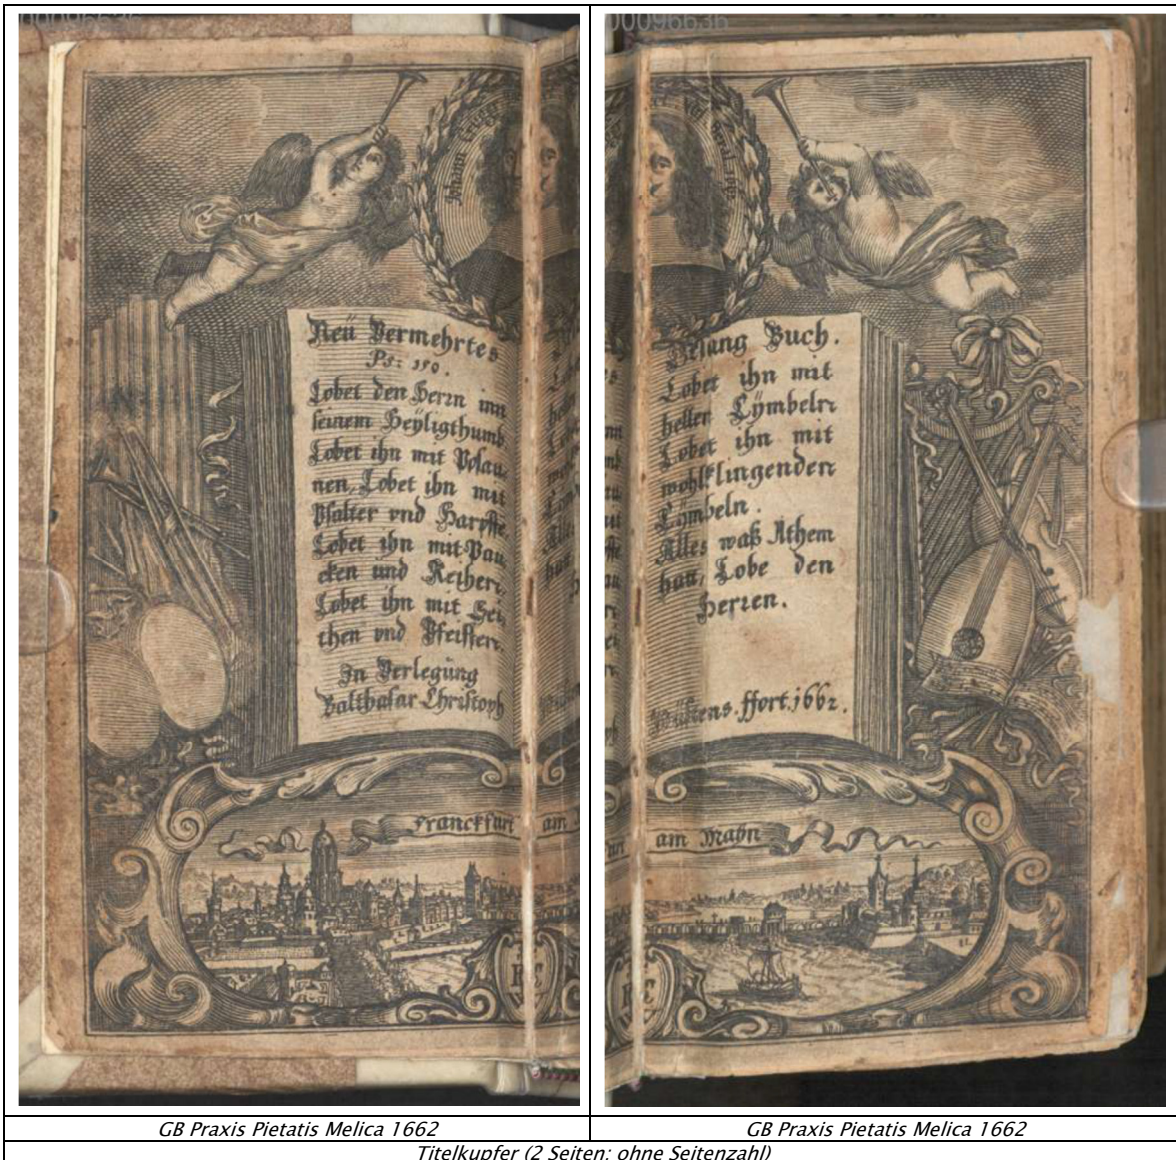 00096636
Johann Crüg
Neü Vermehrtes
Ps: 150.
Lobet den Herrn inn
seinem Heÿligthumb
Lobet ihn mit Posau,
nen, Lobet ihn mit
Psalter vnd Harpffe
Lobet ihn mit Pau,
cken und Reihen,
Lobet ihn mit Sei,
then vnd Pfeiffen.
In Verlegüng
Balthasar Christoph
Franckfurt am
00096636
Gesang Buch.
Lobet ihn mit
hellen Cÿmbeln
Lobet ihn mit
wohlklingenden
Cÿmbeln.
Alles waß Athem
hatt, Lobe den
Herren.
Wüstens. ffort. 1662.
am Maÿn
GB Praxis Pietatis Melica 1662
GB Praxis Pietatis Melica 1662
Titelkupfer (2 Seiten; ohne Seitenzahl)